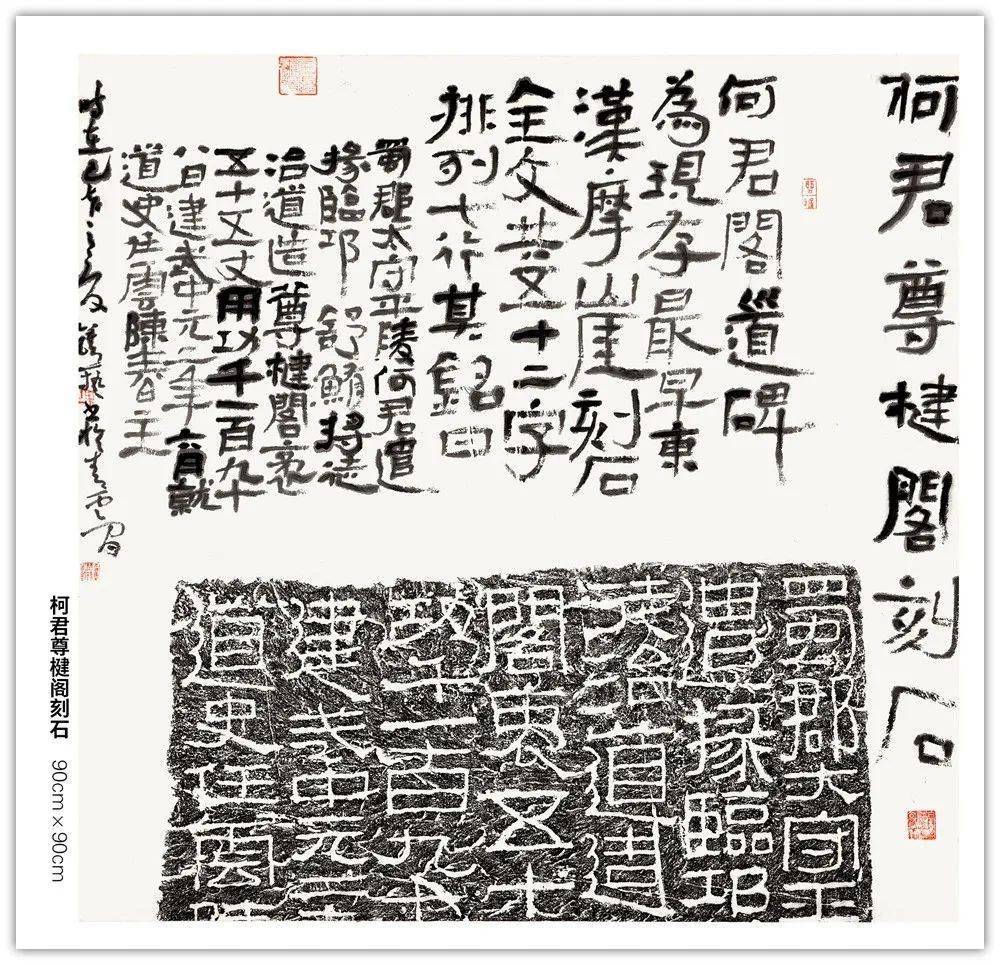 柯君尊楗閣刻石
何君閣道碑
為現存最早東
漢摩崖刻石
全文共五十二字
排列七行其銘曰
蜀郡太守平陵何君遣
掾臨邛舒鮪將徒
治道造尊楗閣袤
五十五丈用功千百九十
八日建武中元二年六月就
道史任雲陳春主
時在己亥之夏
蜀郡大守平
遣掾臨邛
徒治道造
閣袤五十
功千一百九十
建武中元二年
道史任雲陳
柯君尊楗阁刻石 90cm×90cm